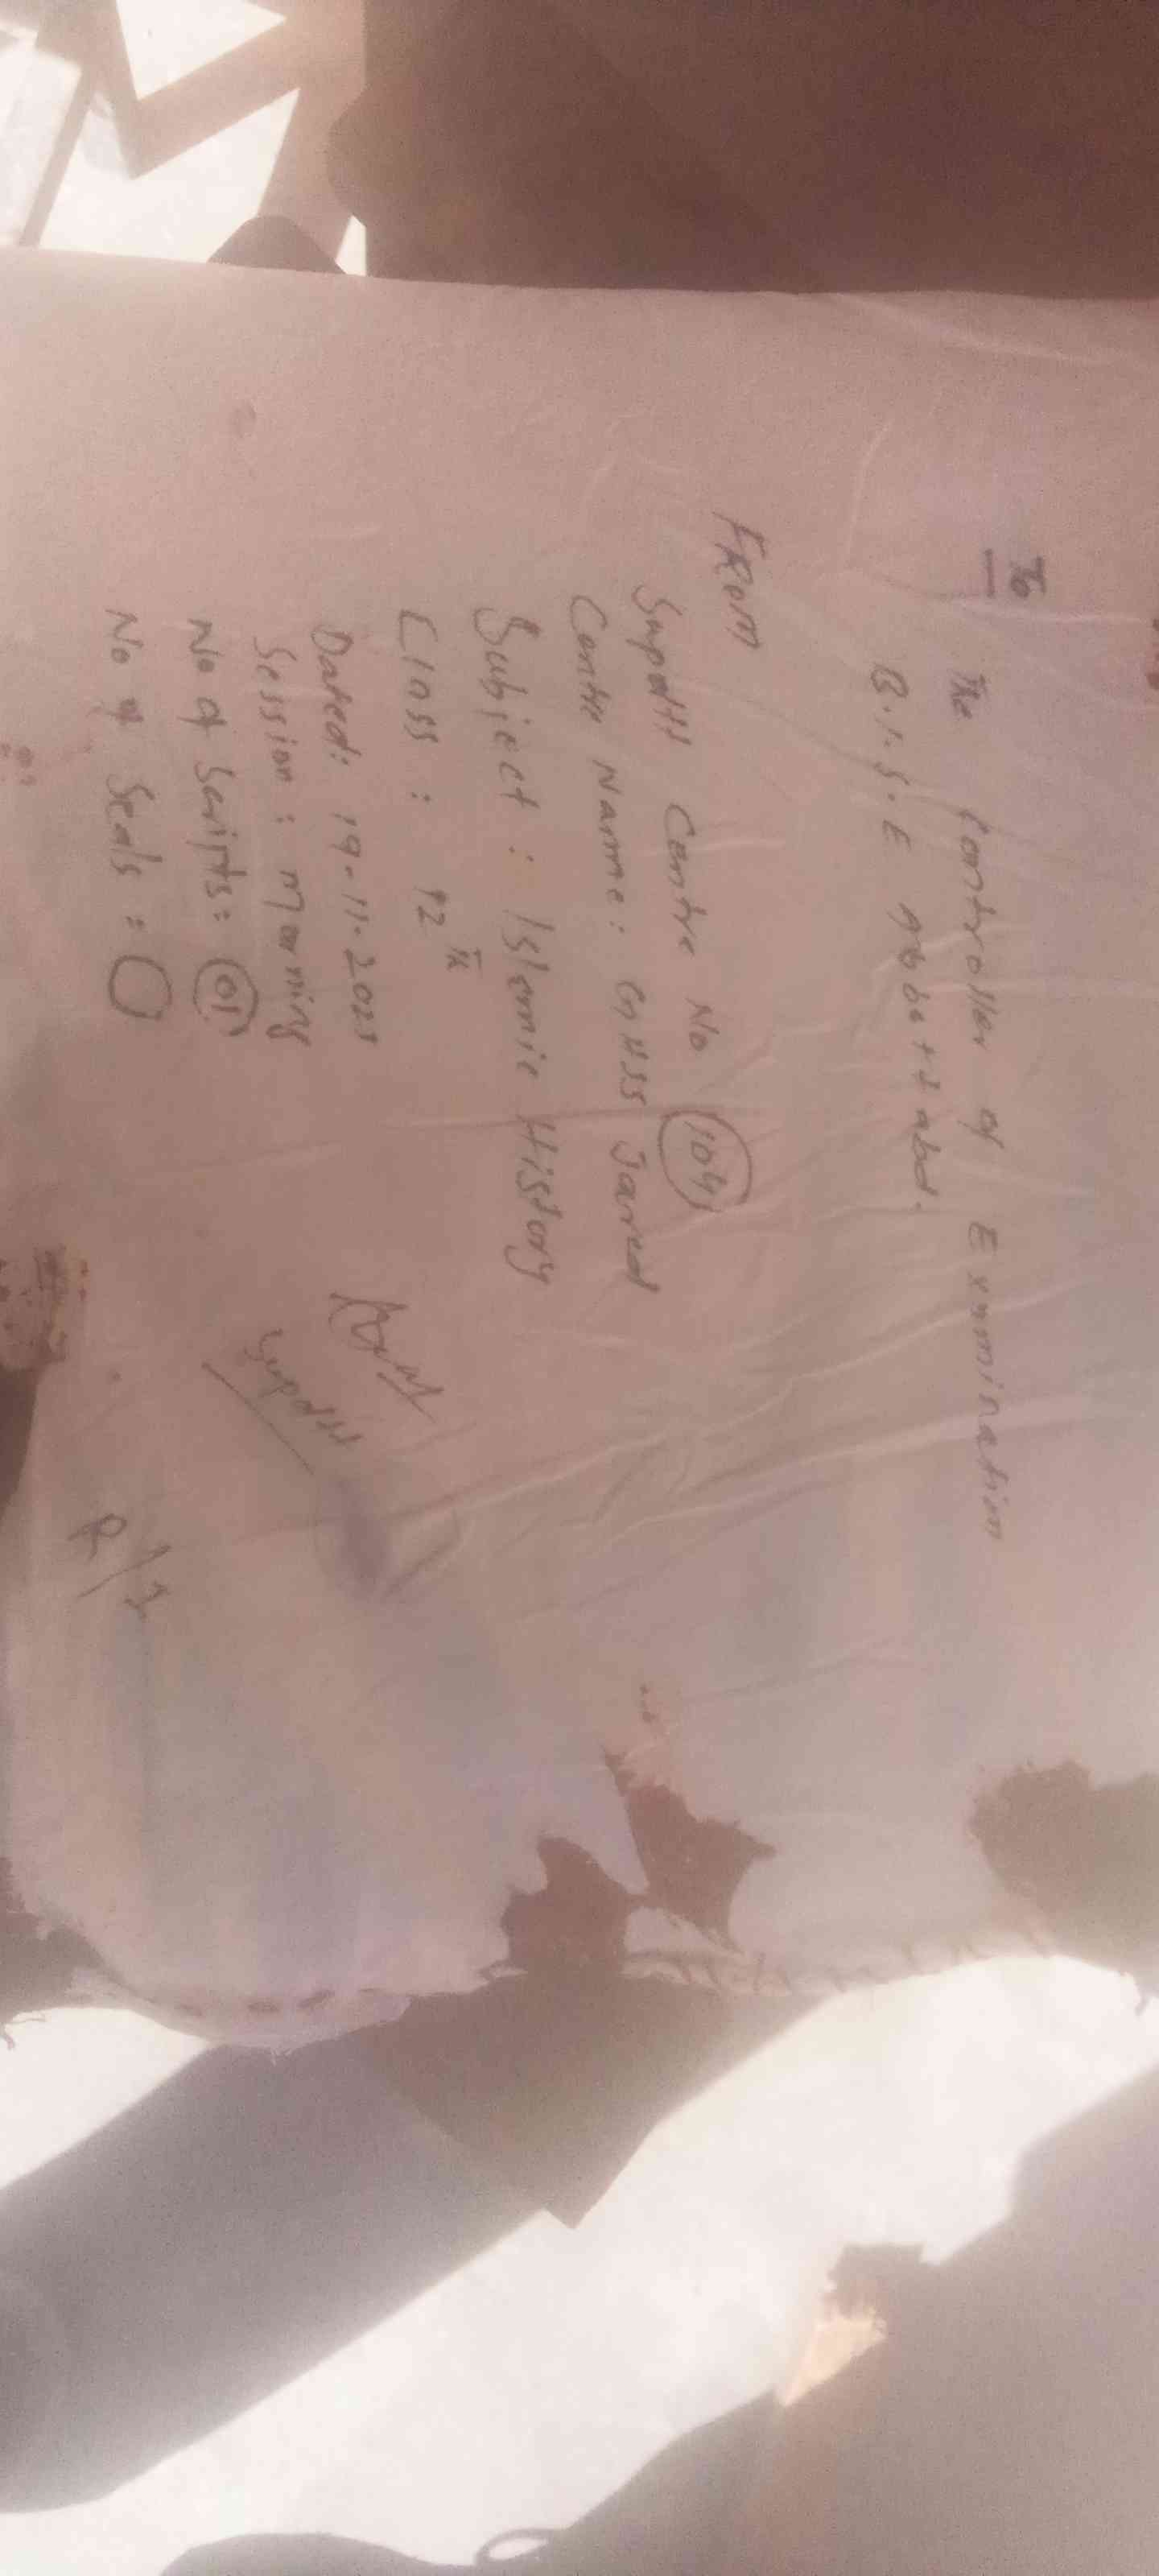 To
The Controller of Examination
B.I.S.E Abbottabad.
FROM
Supdtt Centre No 1041
Centre Name: GHSS Jared
Subject : Islamic History
Class : 12th
Dated: 19.11.2025
Session : Morning
No of Scripts: 01
No of Seals :
Supdtt